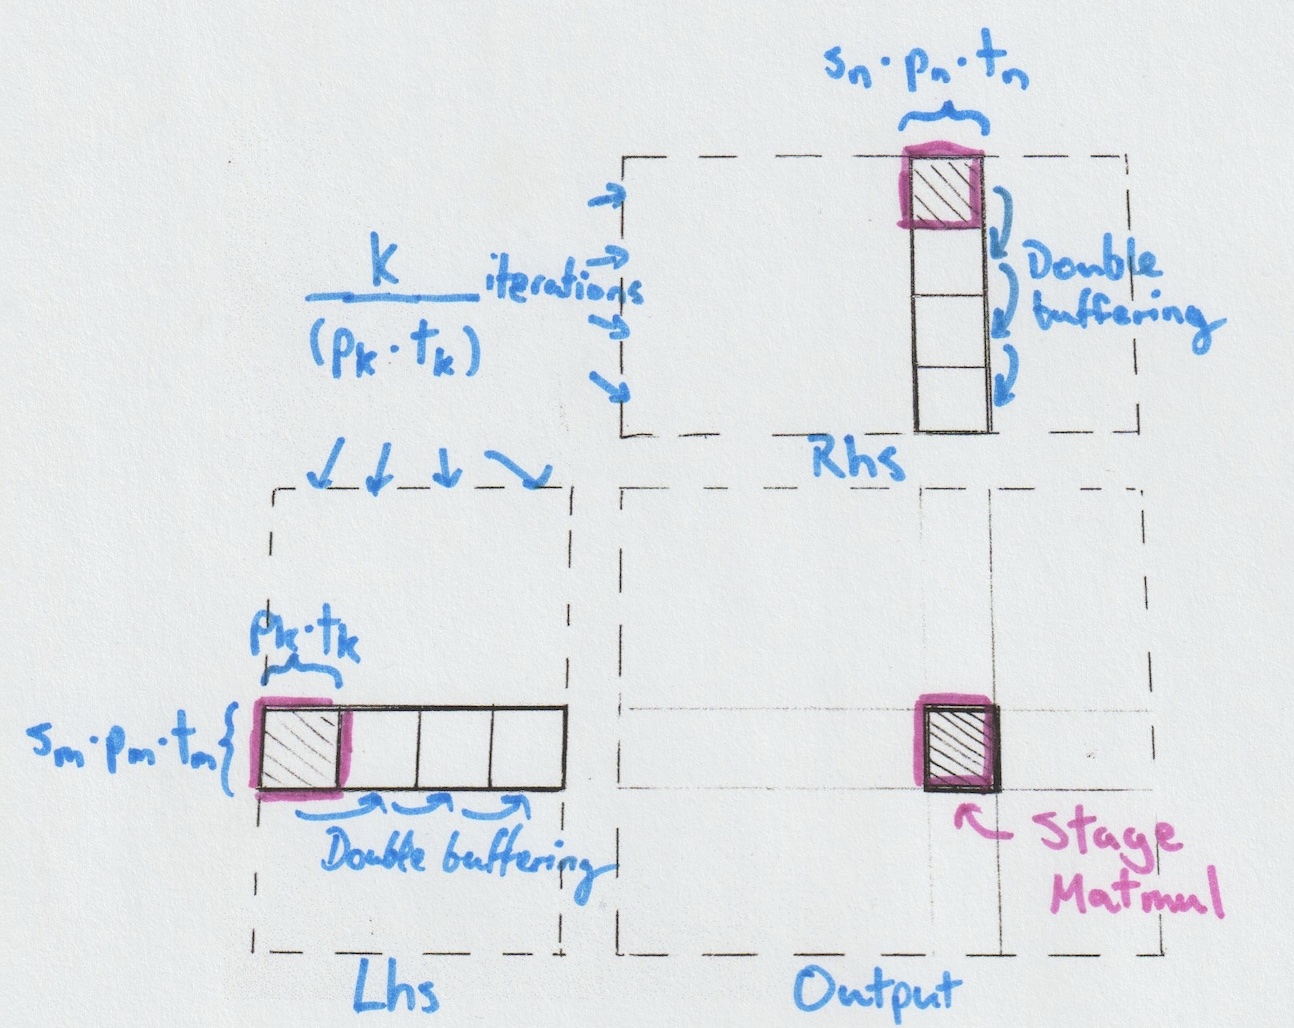 sn·pn·tn
K
iterations
(pk·tk)
Double
buffering
Rhs
pk·tk
sm·pm·tm
Double buffering
Stage
Matmul
Lhs
Output